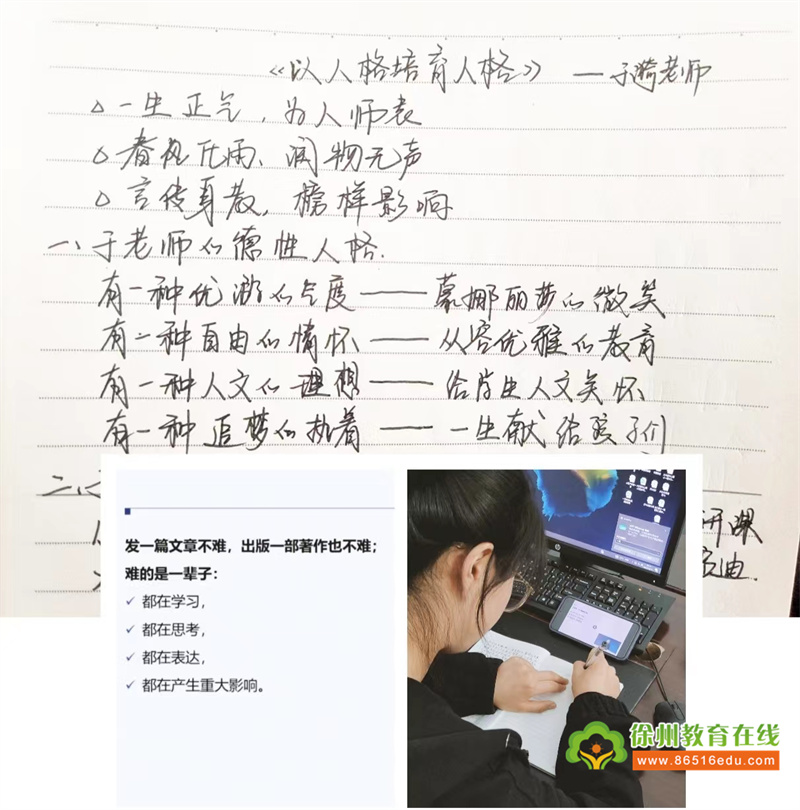 《以人格培育人格》 —于漪老师
一生正气,为人师表
春风化雨、润物无声
言传身教,榜样影响
一、于老师的德性人格.
有一种优游的气度——蒙娜丽莎的微笑
有一种自由的情怀——从容优雅的教育
有一种人文的理想——给学生人文关怀
有一种追梦的执着——一生献给孩子们
二、
研课
发一篇文章不难,出版一部著作也不难;
难的是一辈子:
✓ 都在学习,
✓ 都在思考,
✓ 都在表达,
✓ 都在产生重大影响。
徐州教育在线
www.86516edu.com